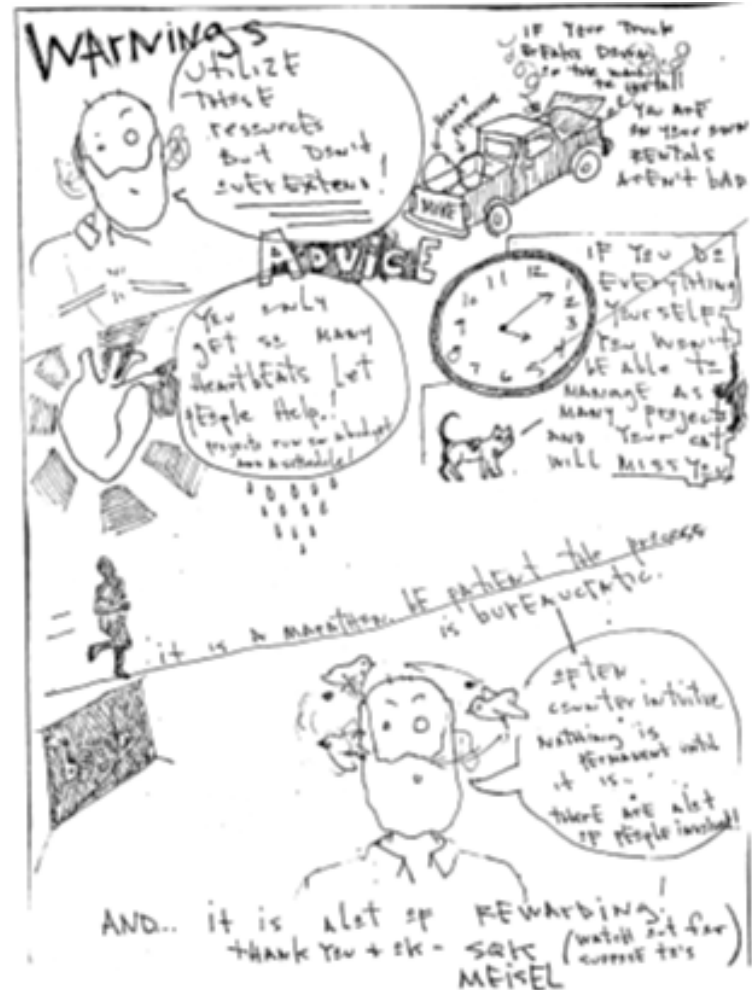 WARNINGS
UTILIZE
THESE
resources
But Don't
overExtend!
IF Your Truck
Breaks Down
to install
You Are
on Your own
RENTALS
AREN'T BAD
ADVICE
You only
get so many
HeartBEATS Let
People Help!
projects run on a budget
and a schedule!
12
1
2
3
4
5
6
7
8
9
10
11
IF You Do
EVERYTHING
YourSELF,
You won't
be able to
MANAGE AS
MANY projects
AND Your cat
WILL MISS You
it is a marathon. be patient the process
is bureaucratic.
often
counter intuitive
Nothing is
Permanent until
it is..
there are alot
of people involved!
AND... it is alot of REWARDING!
THANK You
(watch out for
MEISEL